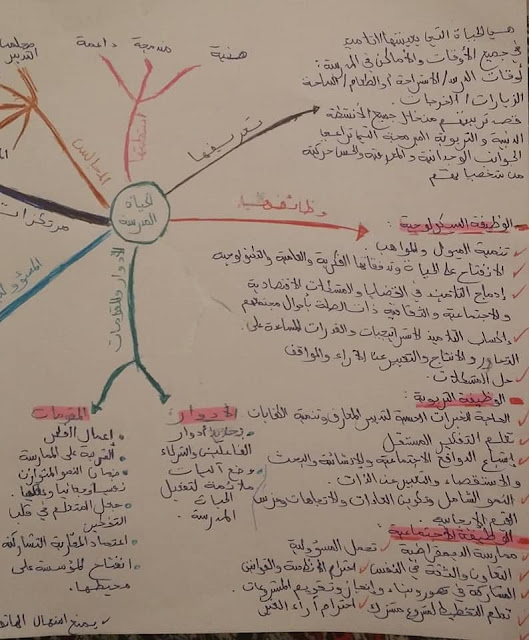 هي الحياة التي يعيشها التلاميذ
في جميع الأوقات والأماكن في المدرسة:
أوقات الدرس/الاستراحة/الطعام/الساحة
الزيارات/الخرجات.
قصد تربيتهم من خلال جميع الأنشطة
الدينية والتربوية المبرمجة التي تراعي
الجوانب الوجدانية والمعرفية والحس حركية
من شخصياتهم
مجلس
التدبير
المجالس
داعمة
مندمجة
هنية
تعريفها
الحياة
المدرسية
مرتكزات
وظائفها
الأدوار والمقومات
الوظيفة السيكولوجية:
تنمية الميول والمواهب.
الانفتاح على الحياة وتدفقاتها الفكرية والعلمية والتكنولوجية
إدماج التلاميذ في القضايا والمشكلات الاقتصادية
والاجتماعية والثقافية ذات الصلة بأحوال مجتمعهم
إكساب التلاميذ الاستراتيجيات والقدرات المساعدة على
التحاور والإنتاج والتعبير عن الآراء والمواقف
حل المشكلات.
الوظيفة التربوية:
الحاجة للخبرات الحسية لتدبير المعارف وتنمية الكفايات
تعلم التفكير المستقل
إشباع الدوافع الاجتماعية والاستكشافية والبحث
والاستقصاء والتعبير عن الذات.
النمو الشامل وتكوين العادات والاتجاهات وغرس
القيم الإيجابية
الوظيفة الاجتماعية:
ممارسة الديمقراطية ✓ تحمل المسؤولية
التعاون والثقة في النفس ✓ احترام الأنظمة والقوانين
المشاركة في تصور وبناء وإنجاز وتقويم المشروعات.
تعلم التخطيط لمشروع مشترك ✓ احترام آراء الغير
الأدوار
تحديد أدوار
الفاعلين والشركاء
وضع آليات
ملائمة لتفعيل
الحياة
المدرسية.
المقومات
إعمال الفكر
القدرة على الممارسة
ضمان النمو المتوازن
نفسيا ووجدانيا وعقليا.
جعل المتعلم في قلب
التفكير
اعتماد المقاربة التشاركية
انفتاح المؤسسة على
محيطها.
✓ يمنع استعمال الهاتف